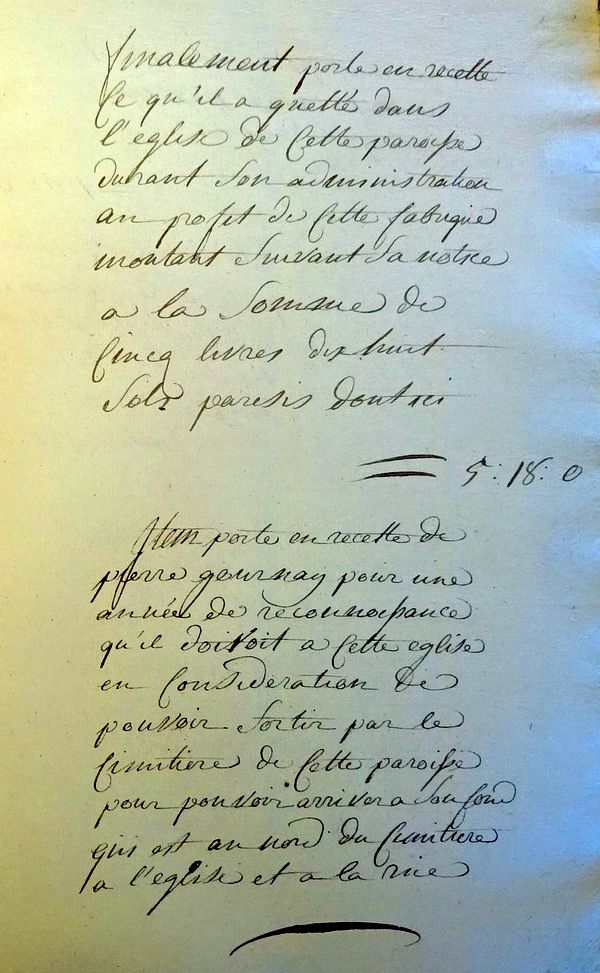 finalement porte en recette
Ce qu'il a quetté dans
l'eglise de Cette paroisse
durant Son administration
au profit de Cette fabrique
montant Suivant Sa notice
a la Somme de
Cincq livres dix huit
Sols paresis dont ici
5: 18: 0
Item porte en recette de
pierre gournay pour une
année de reconnoissance
qu'il doivoit a Cette eglise
en Consideration de
pouvoir Sortir par le
Cimitiere de Cette paroisse
pour pouvoir arriver a Son fond
qui est au nord du Cimitiere
a l'eglise et a la rue